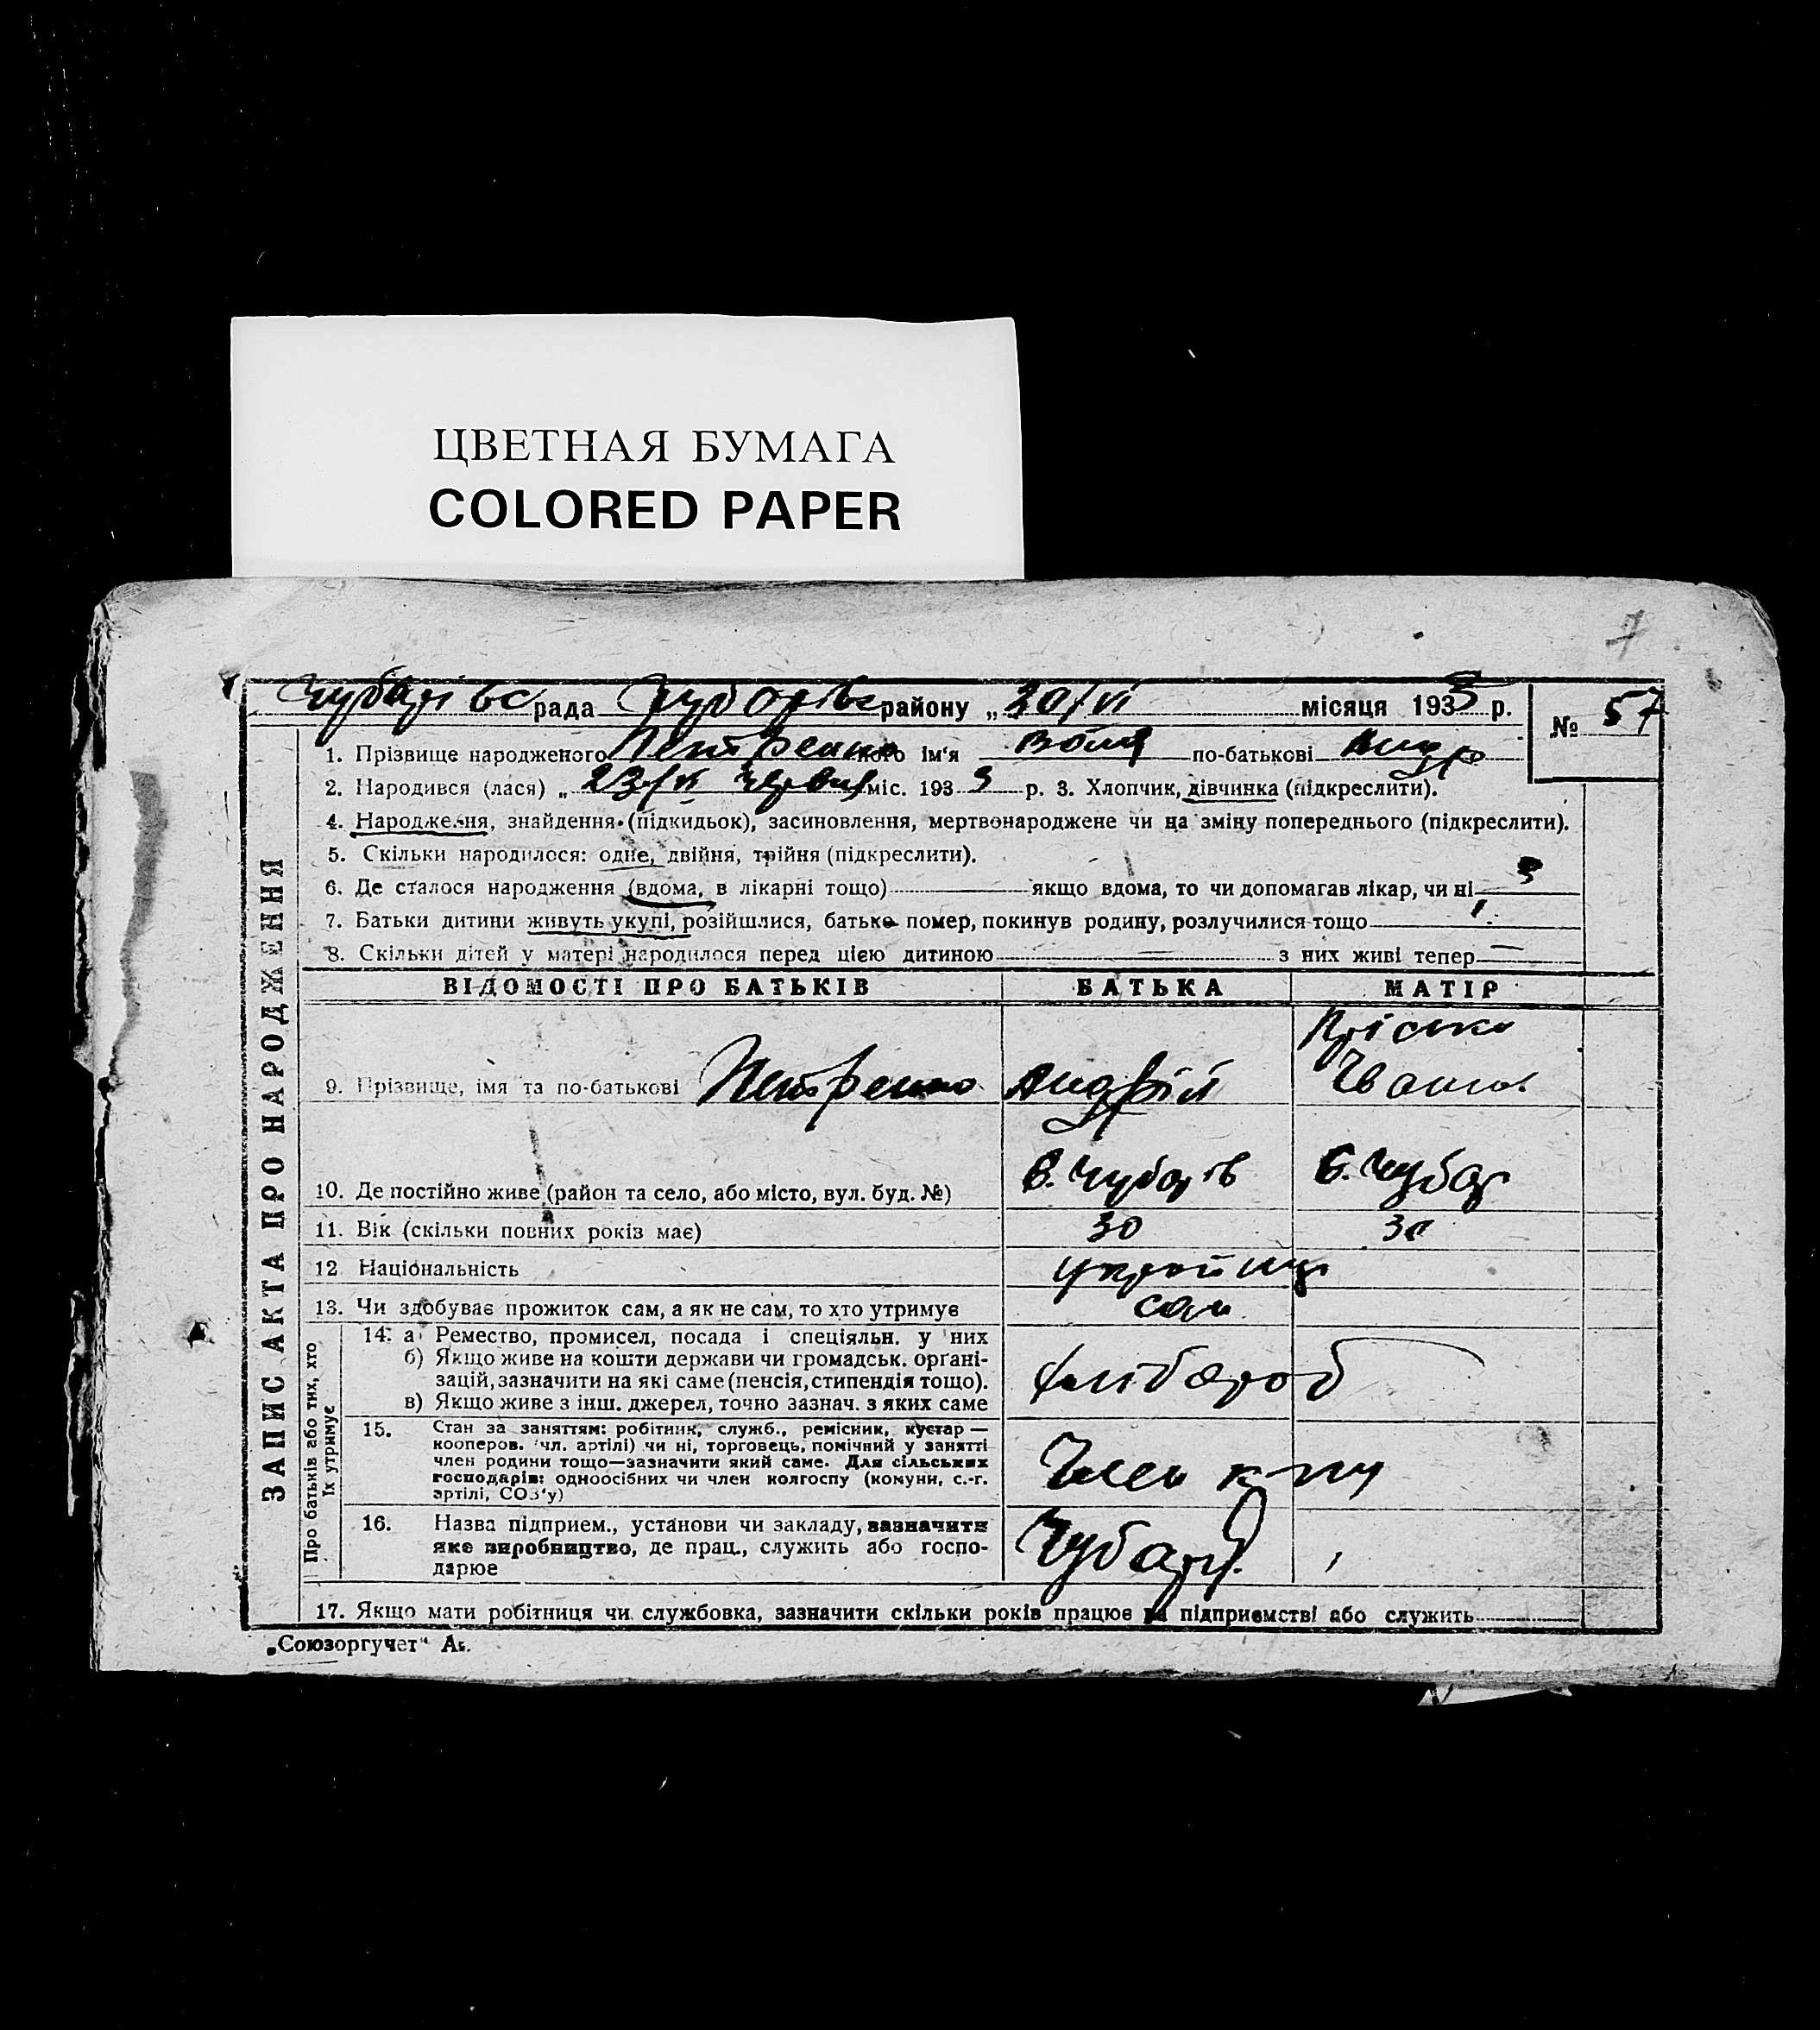 ЦВЕТНАЯ БУМАГА
COLORED PAPER
7
Чубарівс рада Чубарівс району „ 30/VI місяця 1933 р. № 57
1. Прізвище народженого Петренко його ім'я Воля по-батькові Андр
2. Народився (лася) „ 23/VI червня міс. 1933 р. 3. Хлопчик, дівчинка (підкреслити).
4. Народження, знайдення (підкидьок), засиновлення, мертвонароджене чи на зміну попереднього (підкреслити).
5. Скільки народилося: одне, двійня, трійня (підкреслити).
6. Де сталося народження (вдома, в лікарні тощо) якщо вдома, то чи допомагав лікар, чи ні
7. Батьки дитини живуть укупі, розійшлися, батько помер, покинув родину, розлучилися тощо
8. Скільки дітей у матері народилося перед цією дитиною — з них живі тепер —
ЗАПИС АКТА ПРО НАРОДЖЕННЯ
ВІДОМОСТІ ПРО БАТЬКІВ БАТЬКА МАТІР
9. Прізвище, імя та по-батькові Петренко Андрій Пріська Іванов
10. Де постійно живе (район та село, або місто, вул. буд. №) с. Чубарів с. Чубар
11. Вік (скільки повних років має) 30 30
12 Національність україну
13. Чи здобуває прожиток сам, а як не сам, то хто утримує сам
Про батьків або тих, хто їх утримує
14. а Ремество, промисел, посада і спеціяльн. у них
б) Якщо живе на кошти держави чи громадськ. органі-
зацій, зазначити на які саме (пенсія, стипендія тощо).
в) Якщо живе з інш. джерел, точно зазнач. з яких саме
хлібороб
15. Стан за заняттям: робітник, служб., ремісник, кустар —
кооперов. чл. артілі) чи ні, торговець, помічний у занятті
член родини тощо—зазначити який саме. Для сільських
господарів: одноосібних чи член колгоспу (комуни, с.-г.
артілі, СОЗ'у)
Член к-пу
16. Назва підприєм., установи чи закладу, зазначити
яке виробництво, де прац., служить або госпо-
дарює
Чубар.
17. Якщо мати робітниця чи службовка, зазначити скільки років працює на підприємстві або служить
„Союзоргучет“